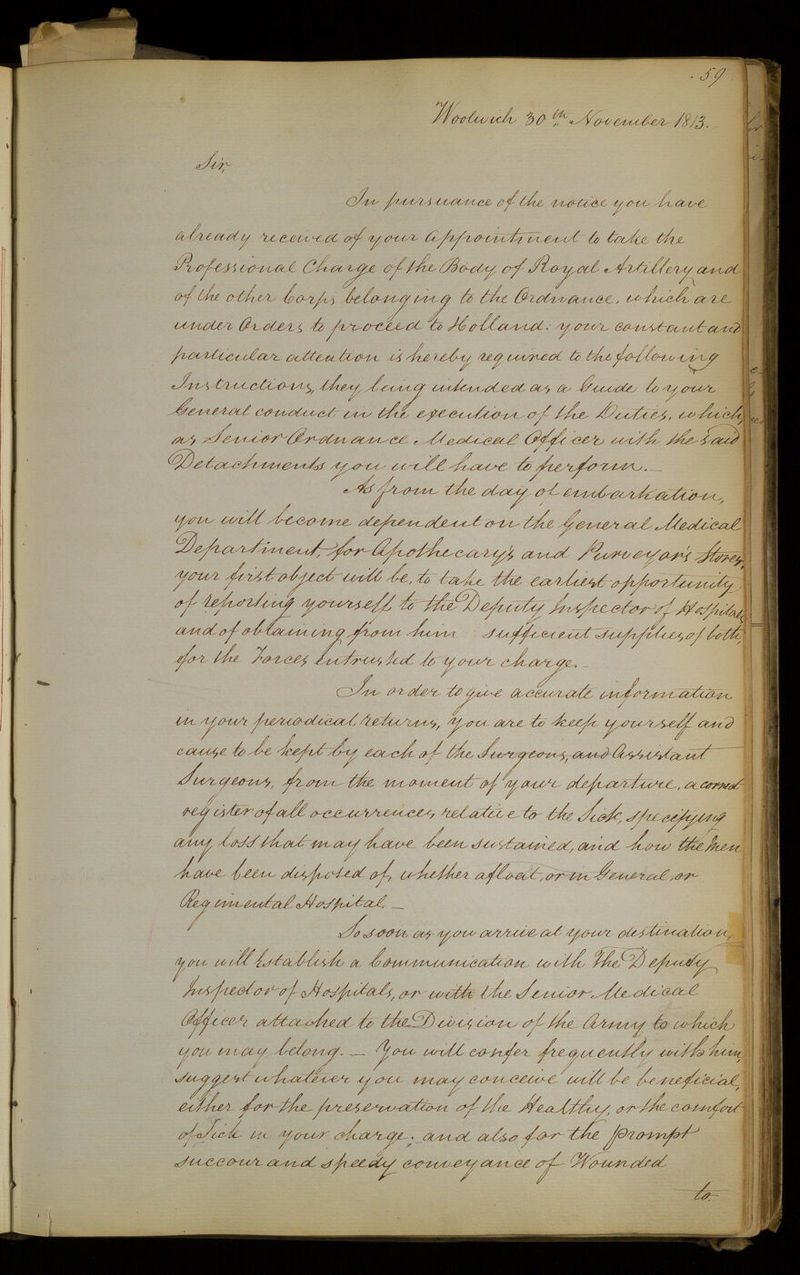 59
Woolwich 30th November 1813.
Sir,
In pursuance of the notice you have
already received of your Appointment to take the
Professional Charge of the Body of Royal Artillery and
of the other Corps belonging to the Ordnance, which are
under Orders to proceed to Holland: your constant and
particular attention is hereby required to the following
Instructions, they being intended as a Guide to your
General conduct in the execution of the Duties, which,
as Senior Ordnance Medical Officer with the said
Detachments you will have to perform.—
As from the day of embarkation,
you will become dependent on the General Medical
Department, for Apothecary's and Purveyor's Stores,
your first object will be, to take the earliest opportunity
of reporting yourself to the Deputy Inspector of Hospitals
and of obtaining from him sufficient supplies of both,
for the Forces entrusted to your charge.—
In order to give accurate information
in your periodical returns, you are to keep yourself and
cause to be kept by each of the Surgeons, and Assistant
Surgeons, from the moment of your departure, a correct
register of all occurrences relative to the Sick, specifying
any loss that may have been sustained, and how the Men
have been disposed of, whether afloat, or in General, or
Regimental Hospital.—
So soon as you arrive at your destination,
you will Establish a Communication with The Deputy
Inspector of Hospitals, or with the Senior Medical
Officer attached to the Division of the Army to which
you may belong.— You will confer frequently with him,
suggest whatever you may conceive will be beneficial,
either for the preservation of the Healthy, or the comfort
of Sick in your charge; and also for the prompt
succour and speedy conveyance of Wounded
to